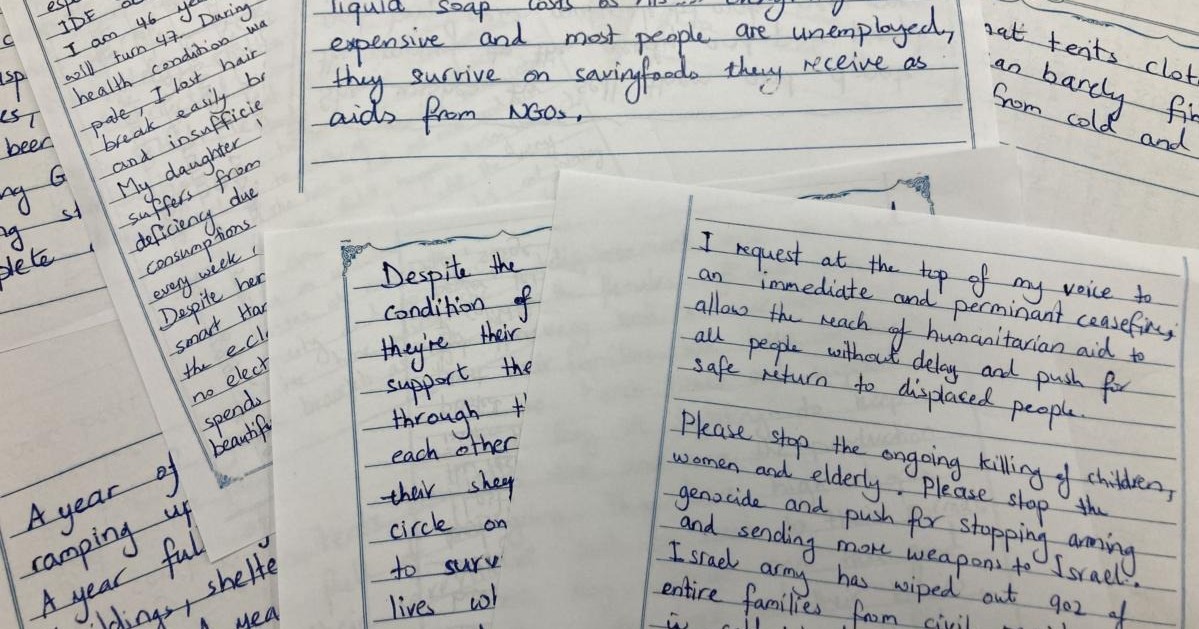 IDF
I am 46
will turn 47. During
health condition
pale, I lost hair
break easily
and insufficie
My daughter
suffers from
deficiency due
consumptions
every week
Despite her
smart
the
no elect
spends
beautifu
liquid soap costs as
expensive and most people are unemployed,
they survive on savingfoods they receive as
aids from NGOs.
tents
barely
from cold and
been
A year of
ramping up
A year ful
ldings, shelte
Despite the
condition of
they're their
support the
through
each other
their
circle on
to surv
lives
I request at the top of my voice to
an immediate and perminant ceasefire,
allow the reach of humanitarian aid to
all people without delay and push for
safe return to displaced people.
Please stop the ongoing killing of children,
women and elderly. Please stop the
genocide and push for stopping arming
and sending more weapons to Israel.
Israel army has wiped out 902 of
entire families from civil